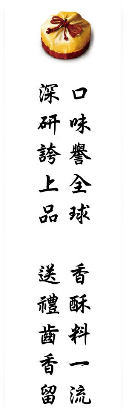 口味譽全球　香酥料一流
深研誇上品　送禮齒香留